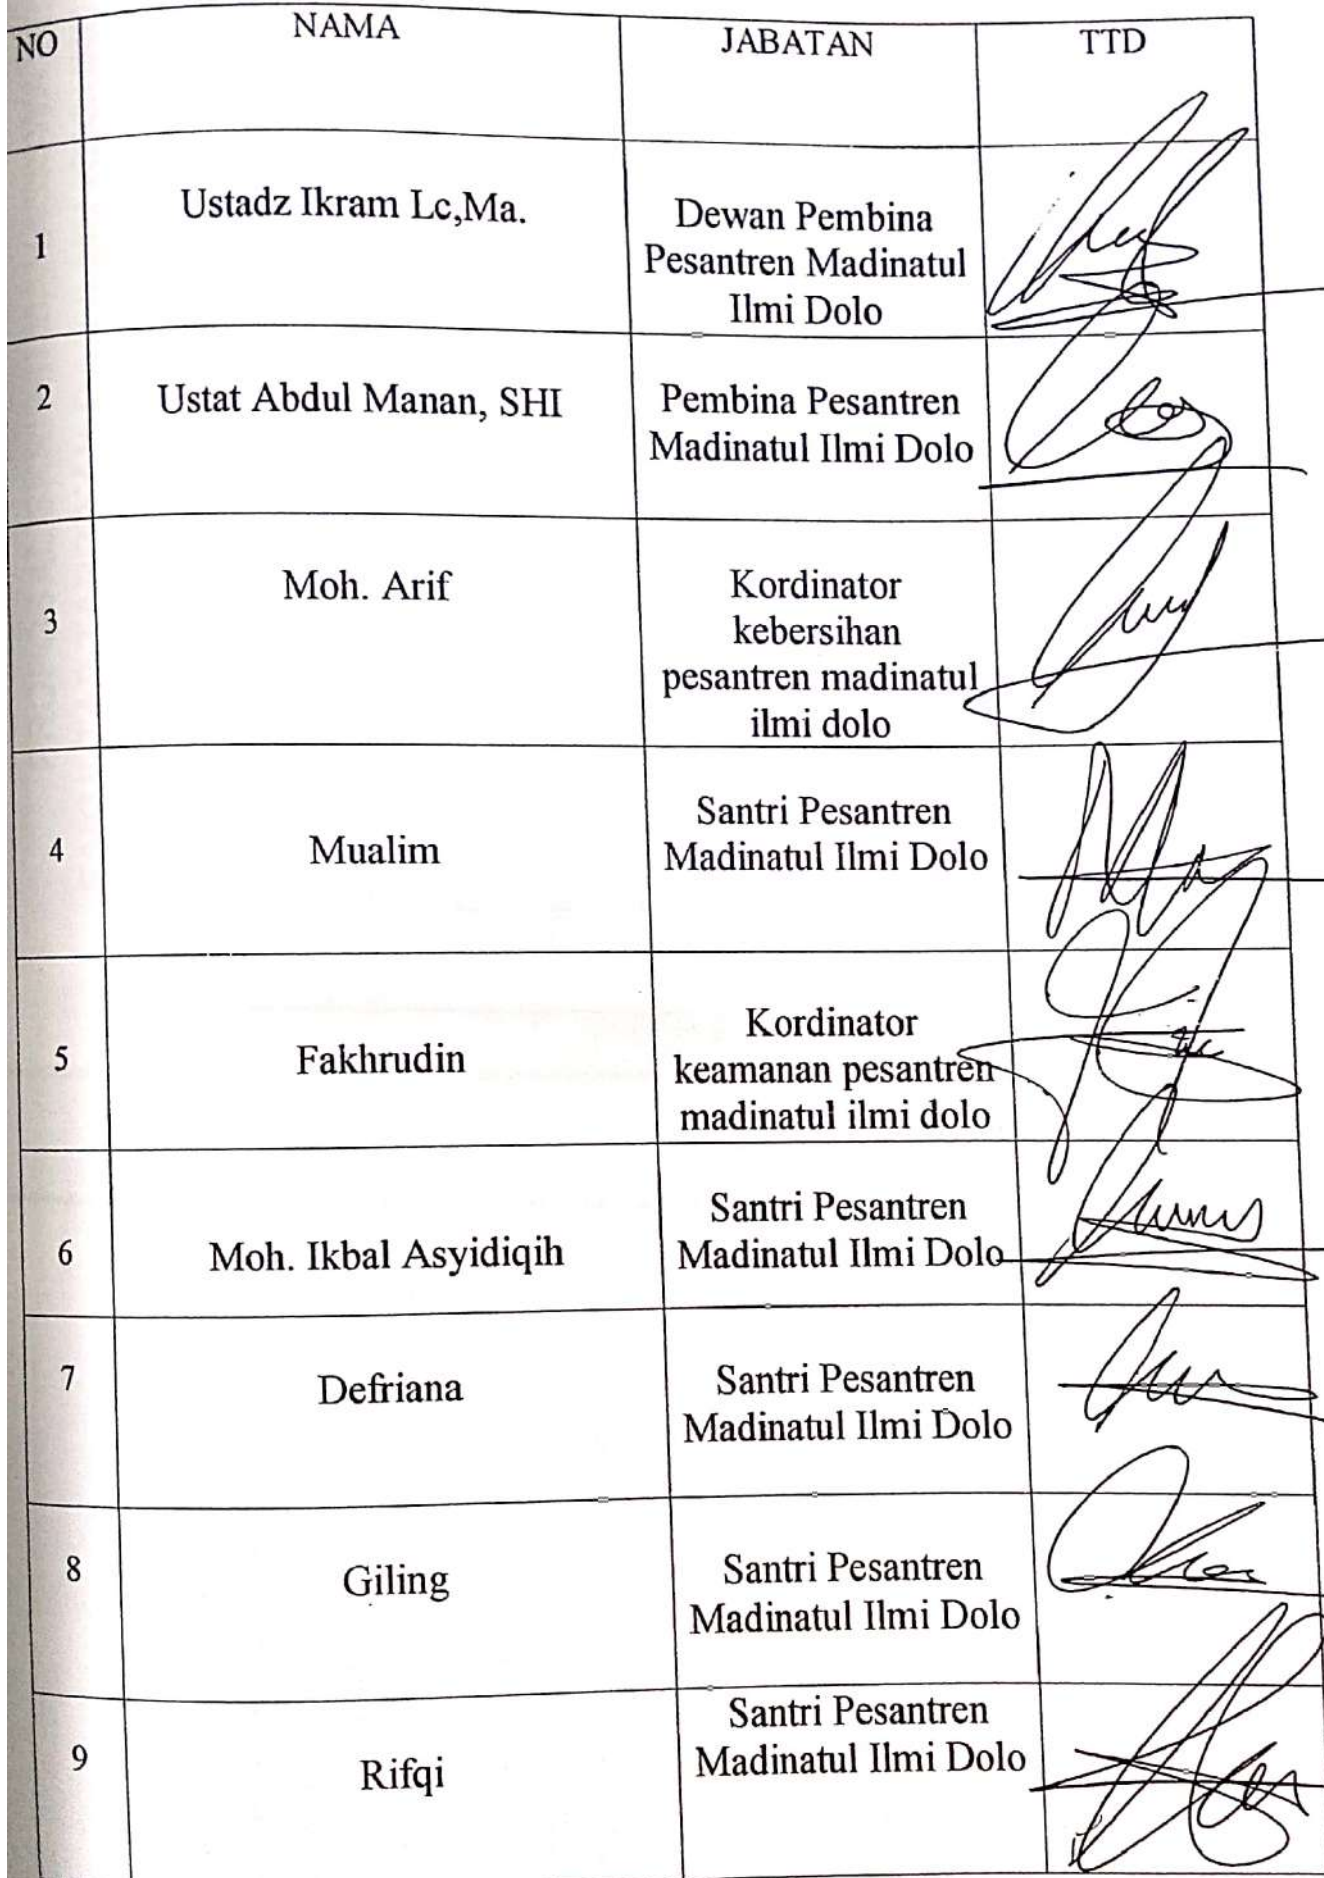 NO NAMA JABATAN TTD
1 Ustadz Ikram Lc,Ma. Dewan Pembina
Pesantren Madinatul
Ilmi Dolo
2 Ustat Abdul Manan, SHI Pembina Pesantren
Madinatul Ilmi Dolo
3 Moh. Arif Kordinator
kebersihan
pesantren madinatul
ilmi dolo
4 Mualim Santri Pesantren
Madinatul Ilmi Dolo
5 Fakhrudin Kordinator
keamanan pesantren
madinatul ilmi dolo
6 Moh. Ikbal Asyidiqih Santri Pesantren
Madinatul Ilmi Dolo
7 Defriana Santri Pesantren
Madinatul Ilmi Dolo
8 Giling Santri Pesantren
Madinatul Ilmi Dolo
9 Rifqi Santri Pesantren
Madinatul Ilmi Dolo